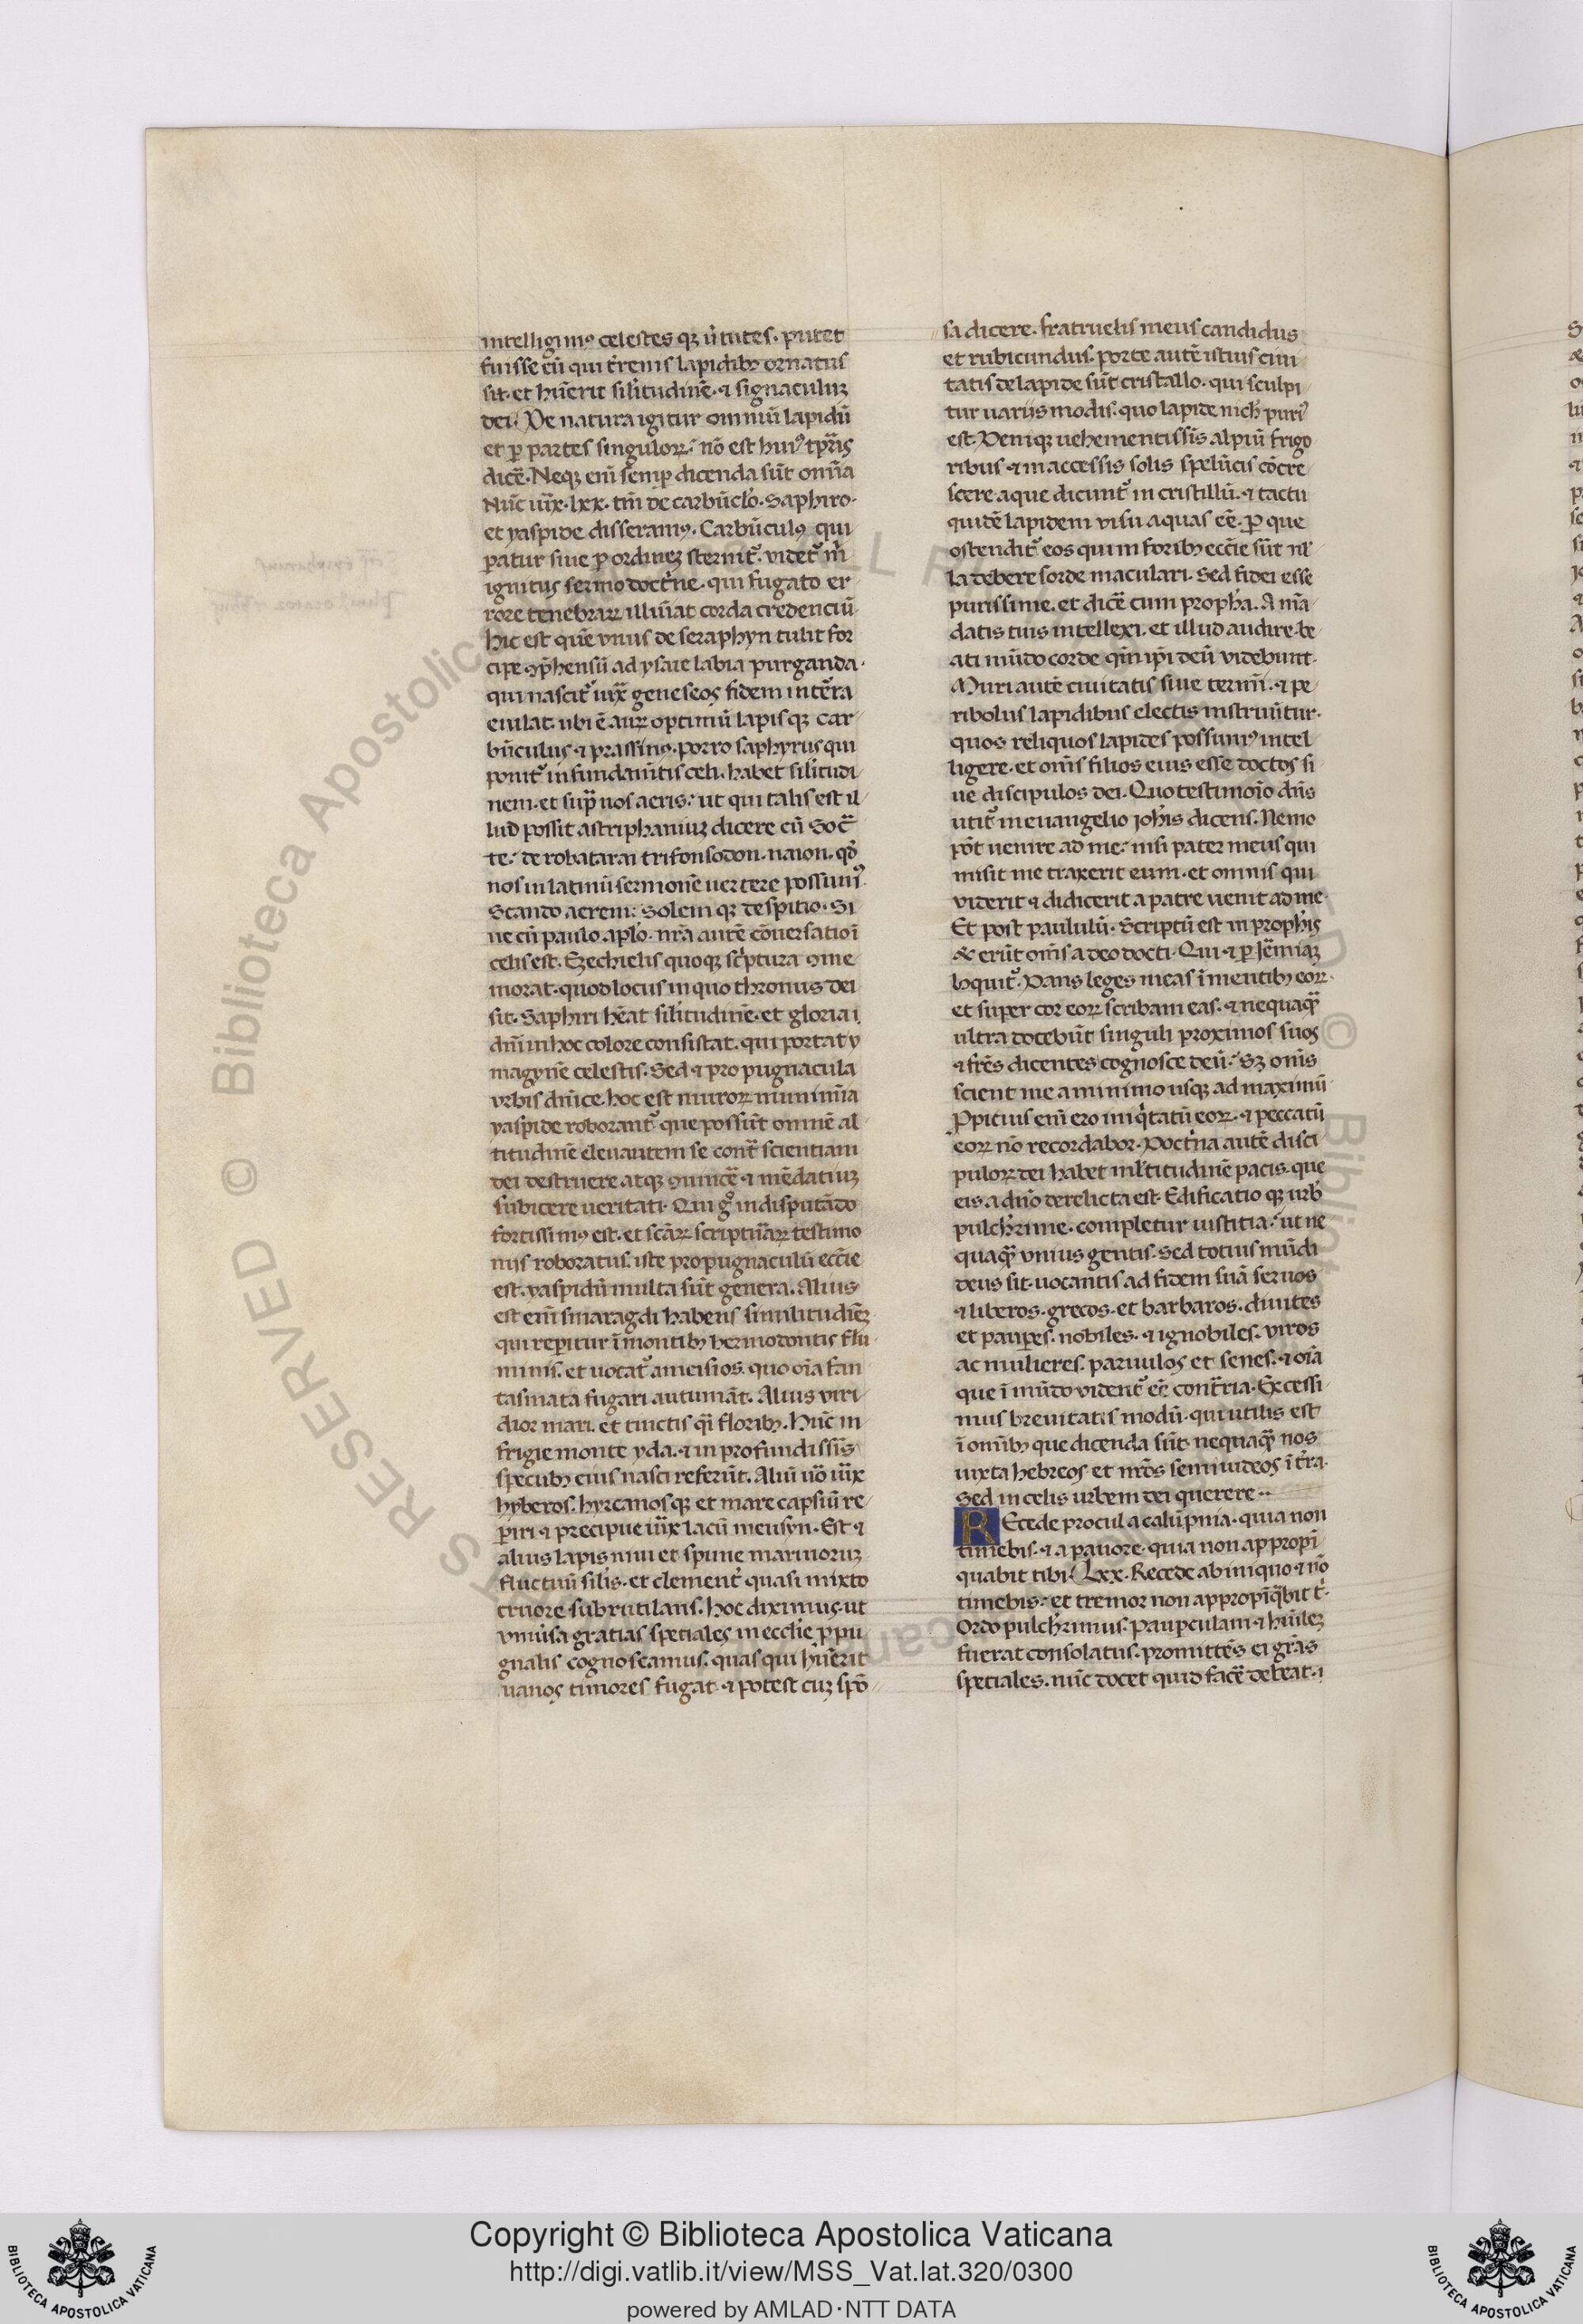 intelligimꝰ celestes qꝫ ũtutes. putet
fuisse eũ qui t̾renis lapidibꝫ ornatus
sit. et hũerit sil̾itudinẽ. ⁊ signaculuꝫ
dei. De natura igitur omniũ lapidũ
et ꝑ partes singuloꝝ: nõ est huiꝰ tp̃ris
dicẽ. Neqꝫ eni᷑ semꝑ dicenda sũt omĩa
Nũc iux̃. lxx. tm̃ de carbũclo. Saphiro.
et yaspide disseramꝰ. Carbũculꝰ qui
patur siue ꝑ ordineꝫ sternit᷑. videt᷑ m̃
ignitus sermo doct̾ne. qui fugato er
rore tenebraꝝ illuĩat corda credenciũ.
hic est quẽ vnus de seraphyn tulit for
cipe ꝯp̃hensũ ad ysaie labia purganda.
qui nascit᷑ iux̃ geneseos fidem in tẽra
euilat. ubi ẽ auꝝ optimũ lapisqꝫ car
bũculus ⁊ prassinꝰ. porro saphyrus qui
ponit᷑ in fundamẽtis celi. habet sil̾itudi
nem. et sup̃ nos aeris: ut qui talis est il
lud possit astriphaniuꝫ dicere cũ Soc̃
te: de robatarai trifon sodon. naion. qđ
nos in latinũ sermonẽ uertere possumꝰ.
Scando aerem: solem qꝫ despitio. Si
ue cũ paulo aplo. nr̃a autẽ cõuersatio ĩ
celis est. Ezechielis quoqꝫ sc̾ptura ꝯme
morat. quod locus in quo thronus dei
sit. Saphiri hẽat sil̾itudinẽ. et gloria i
dñi in hoc colore consistat. qui portat y
magynẽ celestis. Sed ⁊ propugnacula
vrbis dñice. hoc est muroꝝ munimĩa
yaspide roborant᷑ que possũt omnẽ al
titudinẽ eleuantem se cont̃ scientiam
dei destruere atqꝫ ꝯuincẽ ⁊ mẽdatiuꝫ
subicere ueritati. Qui g̊ in disputãdo
fortissimꝰ est. et scãꝝ scriptur̃aꝝ testimo
niis roboratus. iste propugnaculũ eccĩe
est. yaspidũ multa sũt genera. Alius
est eni᷑ smaragdi habens similitudiẽꝫ
qui reperitur ĩ montibꝫ hermodontis flu
minis. et uocat᷑ ameisios. quo oĩa fan
tasmata fugari autumãt. Alius viri
dior mari. et tinctis q̃i floribꝫ. Hũc in
frigie monte yda. ⁊ in profundissĩs
specubꝫ eius nasci referũt. Aliũ uõ iux̃
hyberos. hyrcanosqꝫ et mare capsiũ re
periri ⁊ precipue iux̃ lacũ meusyn. Est ⁊
alius lapis niui et spume marinoruꝫ
fluctuũ sil̾is. et clement᷑ quasi mixto
cruore subrutilans. hoc diximus. ut
vniũsa gratias speciales in ecclĩe ꝓpu
gnalis cognoscamus. quas qui hũerit
uanos timores fugat. ⁊ potest cuꝫ spõ
sa dicere. fratruelis meus candidus
et rubicundus. porte autẽ istius ciui
tatis de lapide sũt cristallo. qui sculpi
tur uariis modis. quo lapide nich̾ puri᷑
est. Deniqꝫ uehementissĩs alpiũ frigo
ribus ⁊ inaccessis solis spelũcis cõcre
scere aque dicunt᷑ in cristillũ. ⁊ tactu
quidẽ lapidem visu aquas eẽ. ꝑ que
ostendit᷑ eos qui in foribꝫ eccĩe sũt nl̾
la debere sorde maculari. Sed fidei esse
purissime. et dicẽ cum proph̾a. A mã
datis tuis intellexi. et illud audire. be
ati mũdo corde qm̃ ip̃i deũ videbunt.
Muri autẽ ciuitatis siue termi᷑. ⁊ pe
ribolus lapidibus electis instruũtur.
quos reliquos lapides possumꝰ intel
ligere. et om̃s filios eius esse doctos si
ue discipulos dei. Quo testimoĩo dñs
utit᷑ in euangelio joh̾is dicens. Nemo
põt uenire ad me: nisi pater meus qui
misit me traxerit eum. et omnis qui
viderit ⁊ didicerit a patre uenit ad me.
Et post paululũ. Scriptũ est in proph̾is
& erũt om̃s a deo docti. Qui ⁊ ꝑ Jeremiaꝫ
loquit᷑. Dans leges meas ĩ mentibꝫ eoꝝ.
et super cor eoꝝ scribam eas. ⁊ nequaq̃
ultra docebũt singuli proximos suos
⁊ fr̃es dicentes cognosce deũ: Sꝫ om̃s
scient me a minimo usqꝫ ad maximũ.
Ꝓpitius eni᷑ ero iniq̾tatũ eoꝝ. ⁊ peccatũ
eoꝝ nõ recordabor. Doct̾na autẽ disci
puloꝝ dei habet ml̾titudinẽ pacis. que
eis a dño derelicta est. Edificatio qꝫ urb̾
pulch̾rime. completur iustitia: ut ne
quaq̃ vnius gentis. Sed totius mũdi
deus sit. uocantis ad fidem suã seruos
⁊ liberos. grecos. et barbaros. diuites
et pauꝑes. nobiles. ⁊ ignobiles. viros
ac mulieres. paruulos et senes. ⁊ oĩa
que ĩ mũdo vident᷑ eẽ cont̃ria. Excessi
mus breuitatis modũ. qui utilis est
ĩ omĩbꝫ que dicenda sũt. nequaq̃ nos
iuxta hebreos et nr̃os semiiudeos ĩ t̾ra.
Sed in celis urbem dei querere..
REcede procul a calũpnia. quia non
timebis. ⁊ a pauore. quia non appropi᷑
quabit tibi. Lxx. Recede ab iniquo ⁊ nõ
timebis: et tremor non appropĩq̾bit t̾.
Ordo pulch̾rimus. Pauꝑculam ⁊ hũileꝫ
fuerat consolatus. promittẽs ei gr̃as
speciales. nũc docet quid facẽ debeat. ⁊
Copyright © Biblioteca Apostolica Vaticana
http://digi.vatlib.it/view/MSS_Vat.lat.320/0300
powered by AMLAD·NTT DATA
BIBLIOTECA APOSTOLICA VATICANA
BIBLIOTECA APOSTOLICA VATICANA